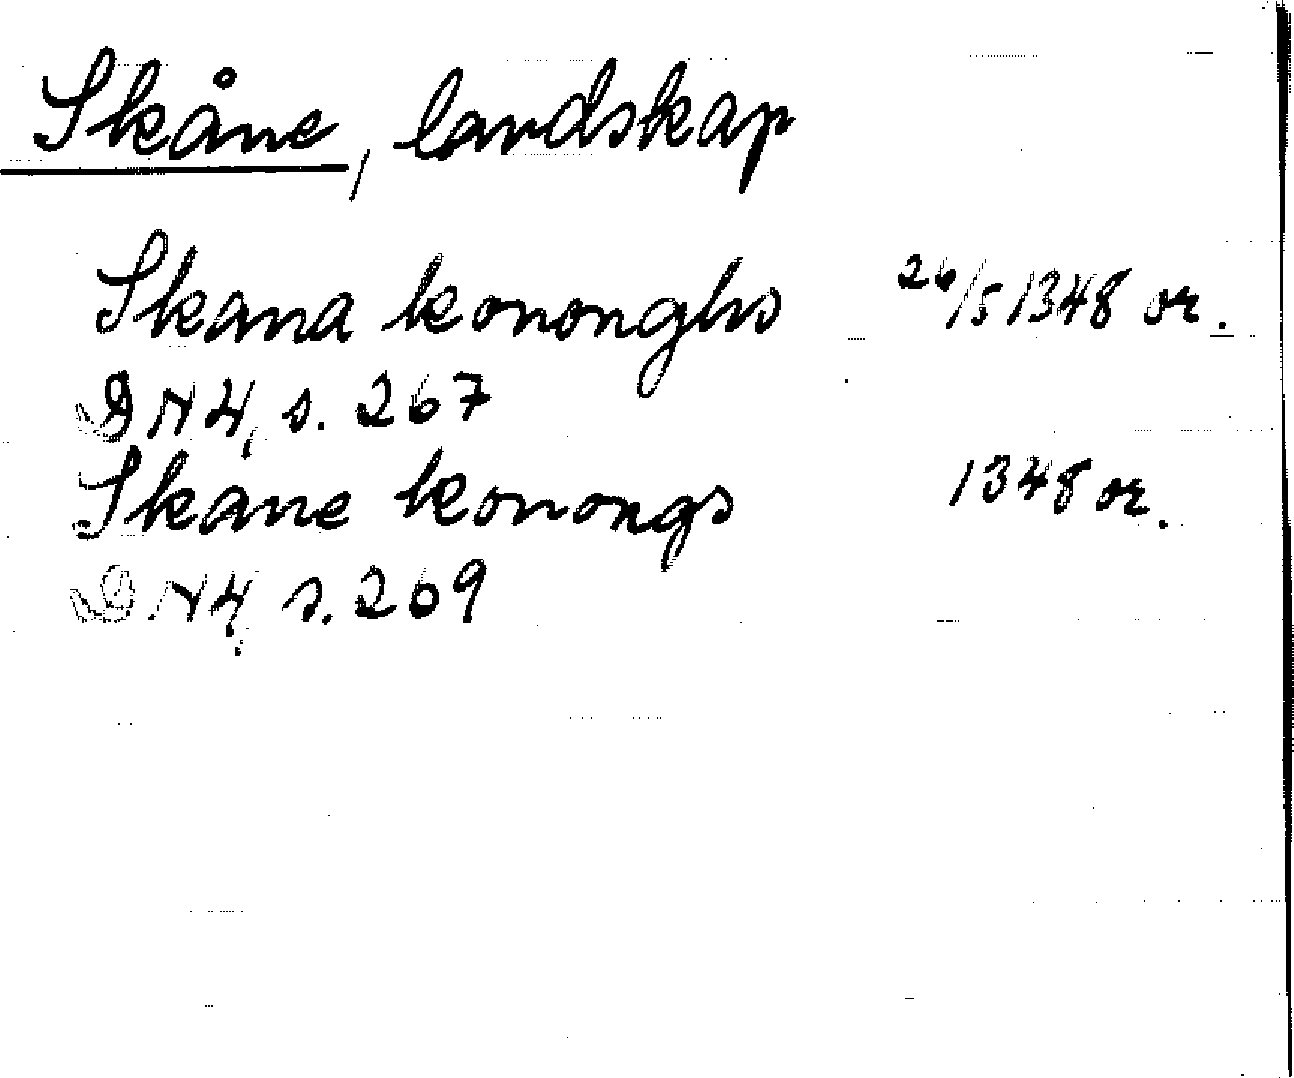 Skåne, landskap
Skana kononghs 26/5 1348 or.
DN 4, s. 267
Skane konongs 1348 or.
DN 4, s. 269